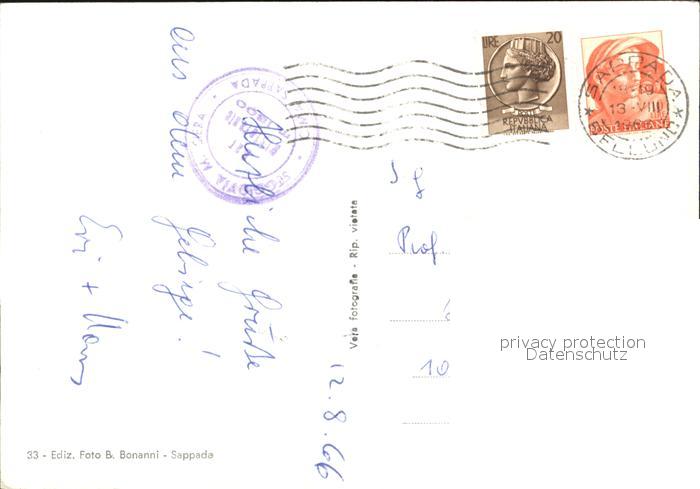 Herzliche Grüße
aus dem Gebirge!
Evi + Hans
12.8.66
Prof.
10
LIRE 20
POSTE
REPUBBLICA
ITALIANA
POSTE ITALIANE
SAPPADA
13 VIII
BELLUNO
SEGGIOVIA M. SIERA
SAPPADA
Vera fotografia - Rip. vietata
33 - Ediz. Foto B. Bonanni - Sappada
privacy protection
Datenschutz